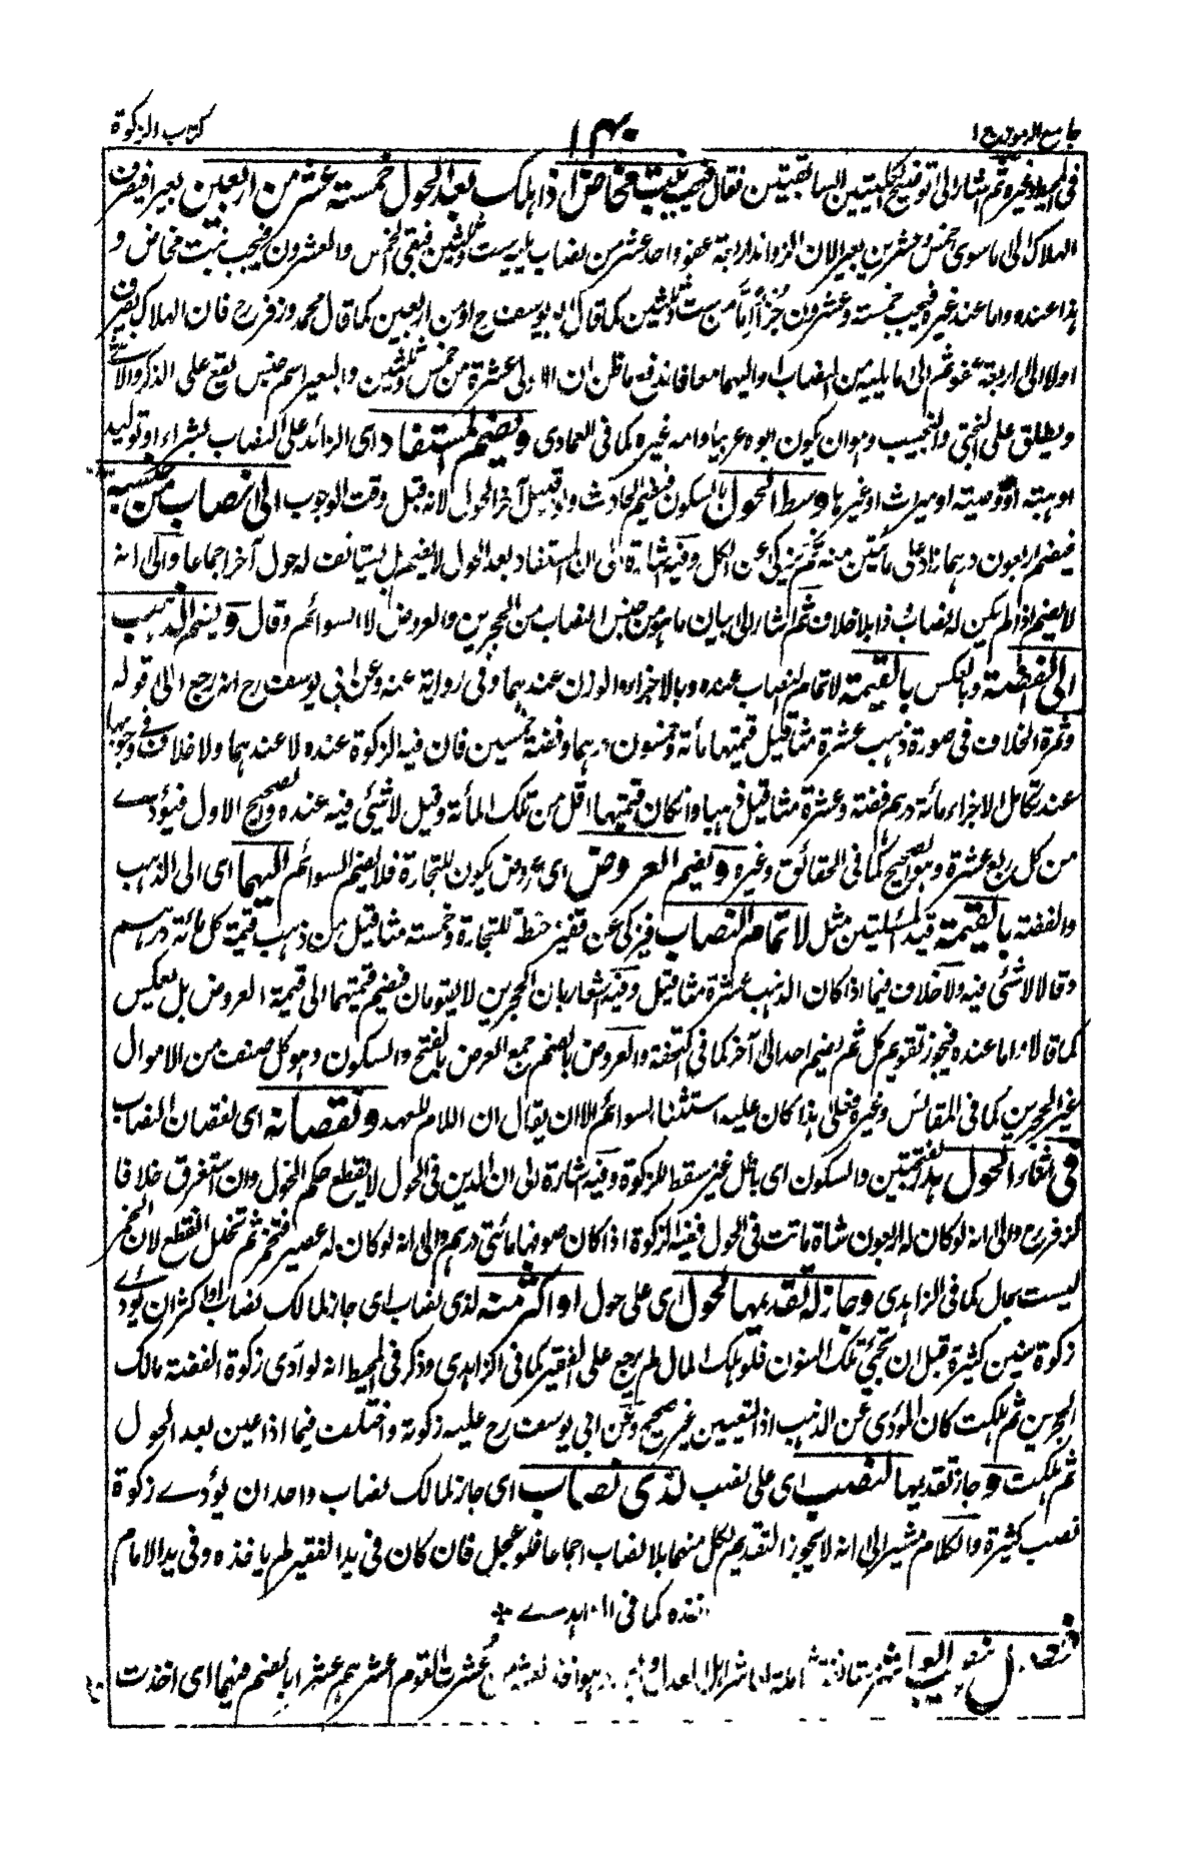 جامع الرموز ج ١
١٤٠
كتاب الزكوة
فى المحيط وغيره ثم اشار الى توضيح الكليتين السابقتين فقال فيجب بنت مخاض اذا هلك بعد الحول خمسة عشر من اربعين بعيرا فيصرف
الهلاك الى ما سوى خمس وعشرين بعيرا لان الزوائد اربعة عفو واحد عشر من نصاب يليه ست وثلثين فبقى الخمس والعشرون فيجب بنت مخاض و
هذا عنده واما عند غيره فيجب خمسة وعشرون جزأ اما من ست وثلثين كما قال ابو يوسف رح او من اربعين كما قال محمد وزفر رح فان الهلاك يصرف
اولا الى اربعة عفو ثم الى ما يليه من النصاب او اليهما معا فاندفع ما ظن ان الاولى عشرة من خمس وثلثين والبعير اسم جنس يقع على الذكر والانثى
ويطلق على البختى والنجيب وهو ان يكون ابوه عربيا وامه غيره كما فى العمادى ويضم المستفاد اى الزائد على النصاب بشراء او توليد
او هبة او وصية او ميراث او غيرها وسط الحول بالسكون فيضم الحادث ولو قبيل آخر الحول لانه قبل وقت الوجوب الى نصاب من جنسه
فيضم اربعون درهما زاد على مأتين منه ثم يزكى عن الكل وفيه اشارة الى ان المستفاد بعد الحول لا يضم بل يستانف له حول آخر اجماعا والى انه
لا يضم اذا لم يكن له نصاب وذا بلا خلاف ثم اشار الى بيان ما هو من جنس النصاب من الحجرين والعروض لا السوائم وقال ويضم الذهب
الى الفضة وبالعكس بالقيمة لاتمام النصاب عنده وبالاجزاء او الوزن عندهما وفى رواية عنه وعن ابى يوسف رح انه رجع الى قوله
وثمرة الخلاف فى صورة ذهب عشرة مثاقيل قيمتها مأة وخمسون درهما وفضة خمسين فان فيه الزكوة عنده لا عندهما ولا خلاف فى وجوبها
عند تكامل الاجزاء مائة درهم فضة وعشرة مثاقيل ذهبا وان كان قيمتها اقل من تلك المأة وقيل لا شئى فيه عنده والصحيح الاول فيؤدى
من كل ربع عشرة وهو الصحيح كما فى الحقائق وغيره ويضم العروض اى عروض يكون للتجارة فلا يضم السوائم اليهما اى الى الذهب
والفضة بالقيمة قيد المسئلتين مثل لاتمام النصاب فيزكى عن قفيز حنطة للتجارة وخمسة مثاقيل من ذهب قيمة كل مائة درهم
وقالا لا شئى فيه ولا خلاف فيما اذا كان الذهب عشرة مثاقيل وفيه اشعار بان الحجرين لا يقومان فيضم قيمتهما الى قيمة العروض بل بعكس
كما قالا واما عنده فيجوز تقويم كل ثم يضم احد الى آخر كما فى التحفة والعروض بالضم جمع العرض بالفتح والسكون وهو كل صنف من الاموال
غير الحجرين كما فى المقائس وغيره فعلى هذا كان عليه استثناء السوائم الا ان يقال ان اللام للعهد ونقصانه اى نقصان النصاب
فى اثناء الحول هدر بفتحتين والسكون اى باطل غير مسقط للزكوة وفيه اشارة الى ان الدين فى الحول لا يقطع حكم الحول وان استغرق خلافا
لزفر رح والى انه لو كان له اربعون شاة ماتت فى الحول ففيه الزكوة اذا كان صوفها مأتى درهم والى انه لو كان له عصير فتخمر ثم تخلل انقطع لان الخمر
ليست بمال كما فى الزاهدى وجاز له تقديمها لحول اى على حول او اكثر منه لذى نصاب اى جاز لمالك نصاب او اكثر ان يؤدى
زكوة سنين كثيرة قبل ان تجئ تلك السنون فلو هلك المال لم يرجع على الفقير كما فى الزاهدى وذكر فى المحيط انه لو ادى زكوة الفضة مالك
الحجرين ثم هلكت كان المؤدى عن الذهب اذ التعيين غير صحيح وعن ابى يوسف رح عليه زكوته واختلف فيما اذا عين بعد الحول
ثم هلكت وجاز تقديمها لنصب اى على نصب لذى نصاب اى جاز لمالك نصاب واحد ان يؤدى زكوة
نصب كثيرة والكلام مشير الى انه لا يجوز التقديم لكل منهما بلا نصاب اجماعا فلو عجل فان كان فى يد الفقير لم ياخذه وفى يد الامام
اخذه كما فى الزاهدى
فصل نصب العاشر عشرت القوم اعشرهم عشرا بالضم فيهما اى اخذت